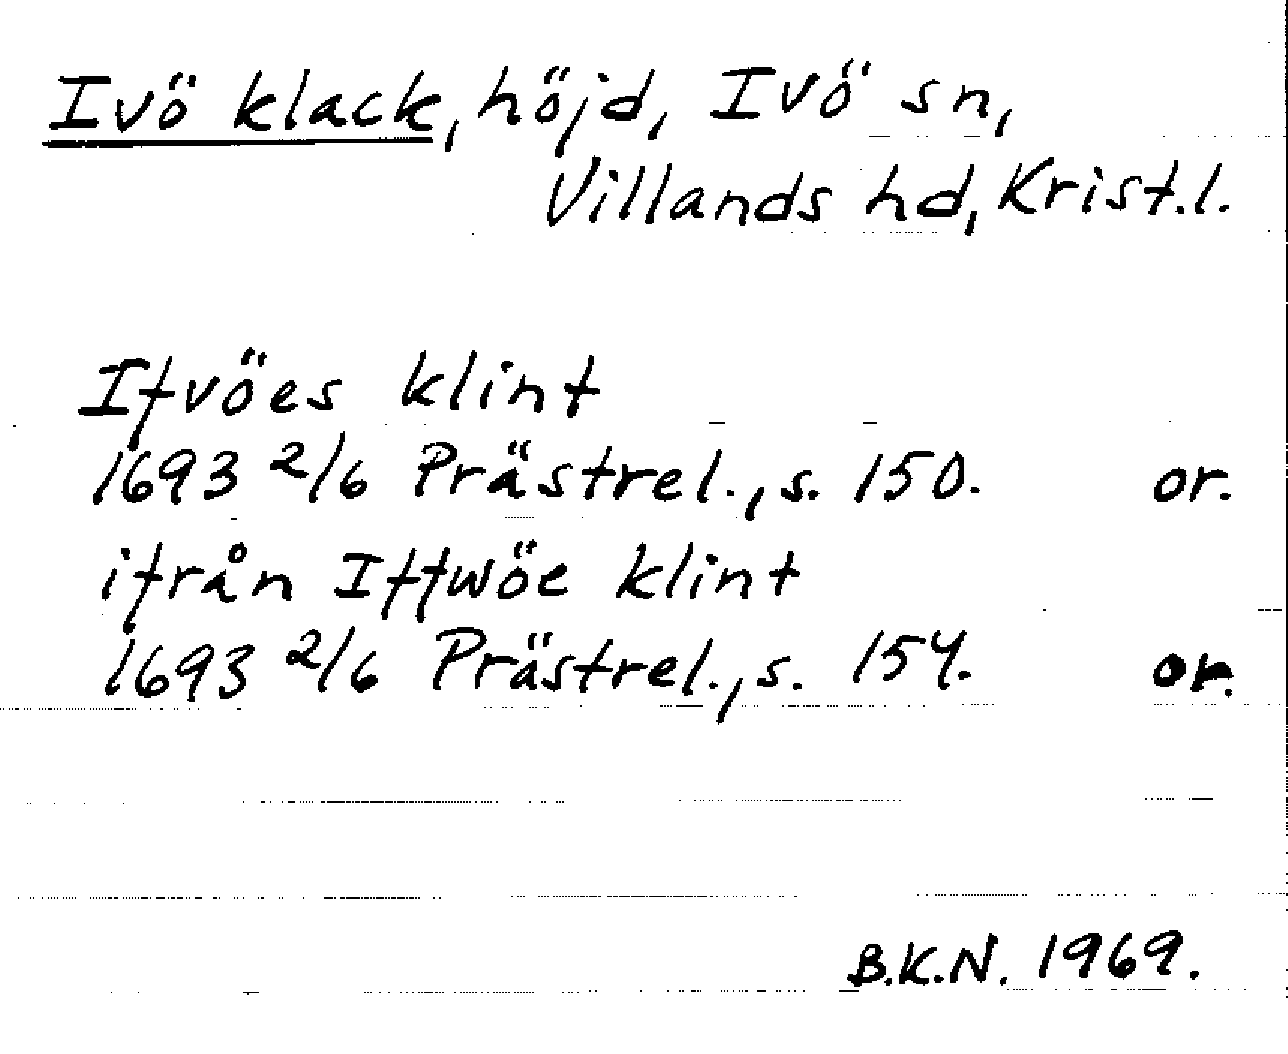 Ivö klack, höjd, Ivö sn,
Villands hd, Krist.l.
Ifvöes klint
1693 2/6 Prästrel., s. 150. or.
ifrån Iffwöe klint
1693 2/6 Prästrel., s. 154. or.
B.K.N. 1969.